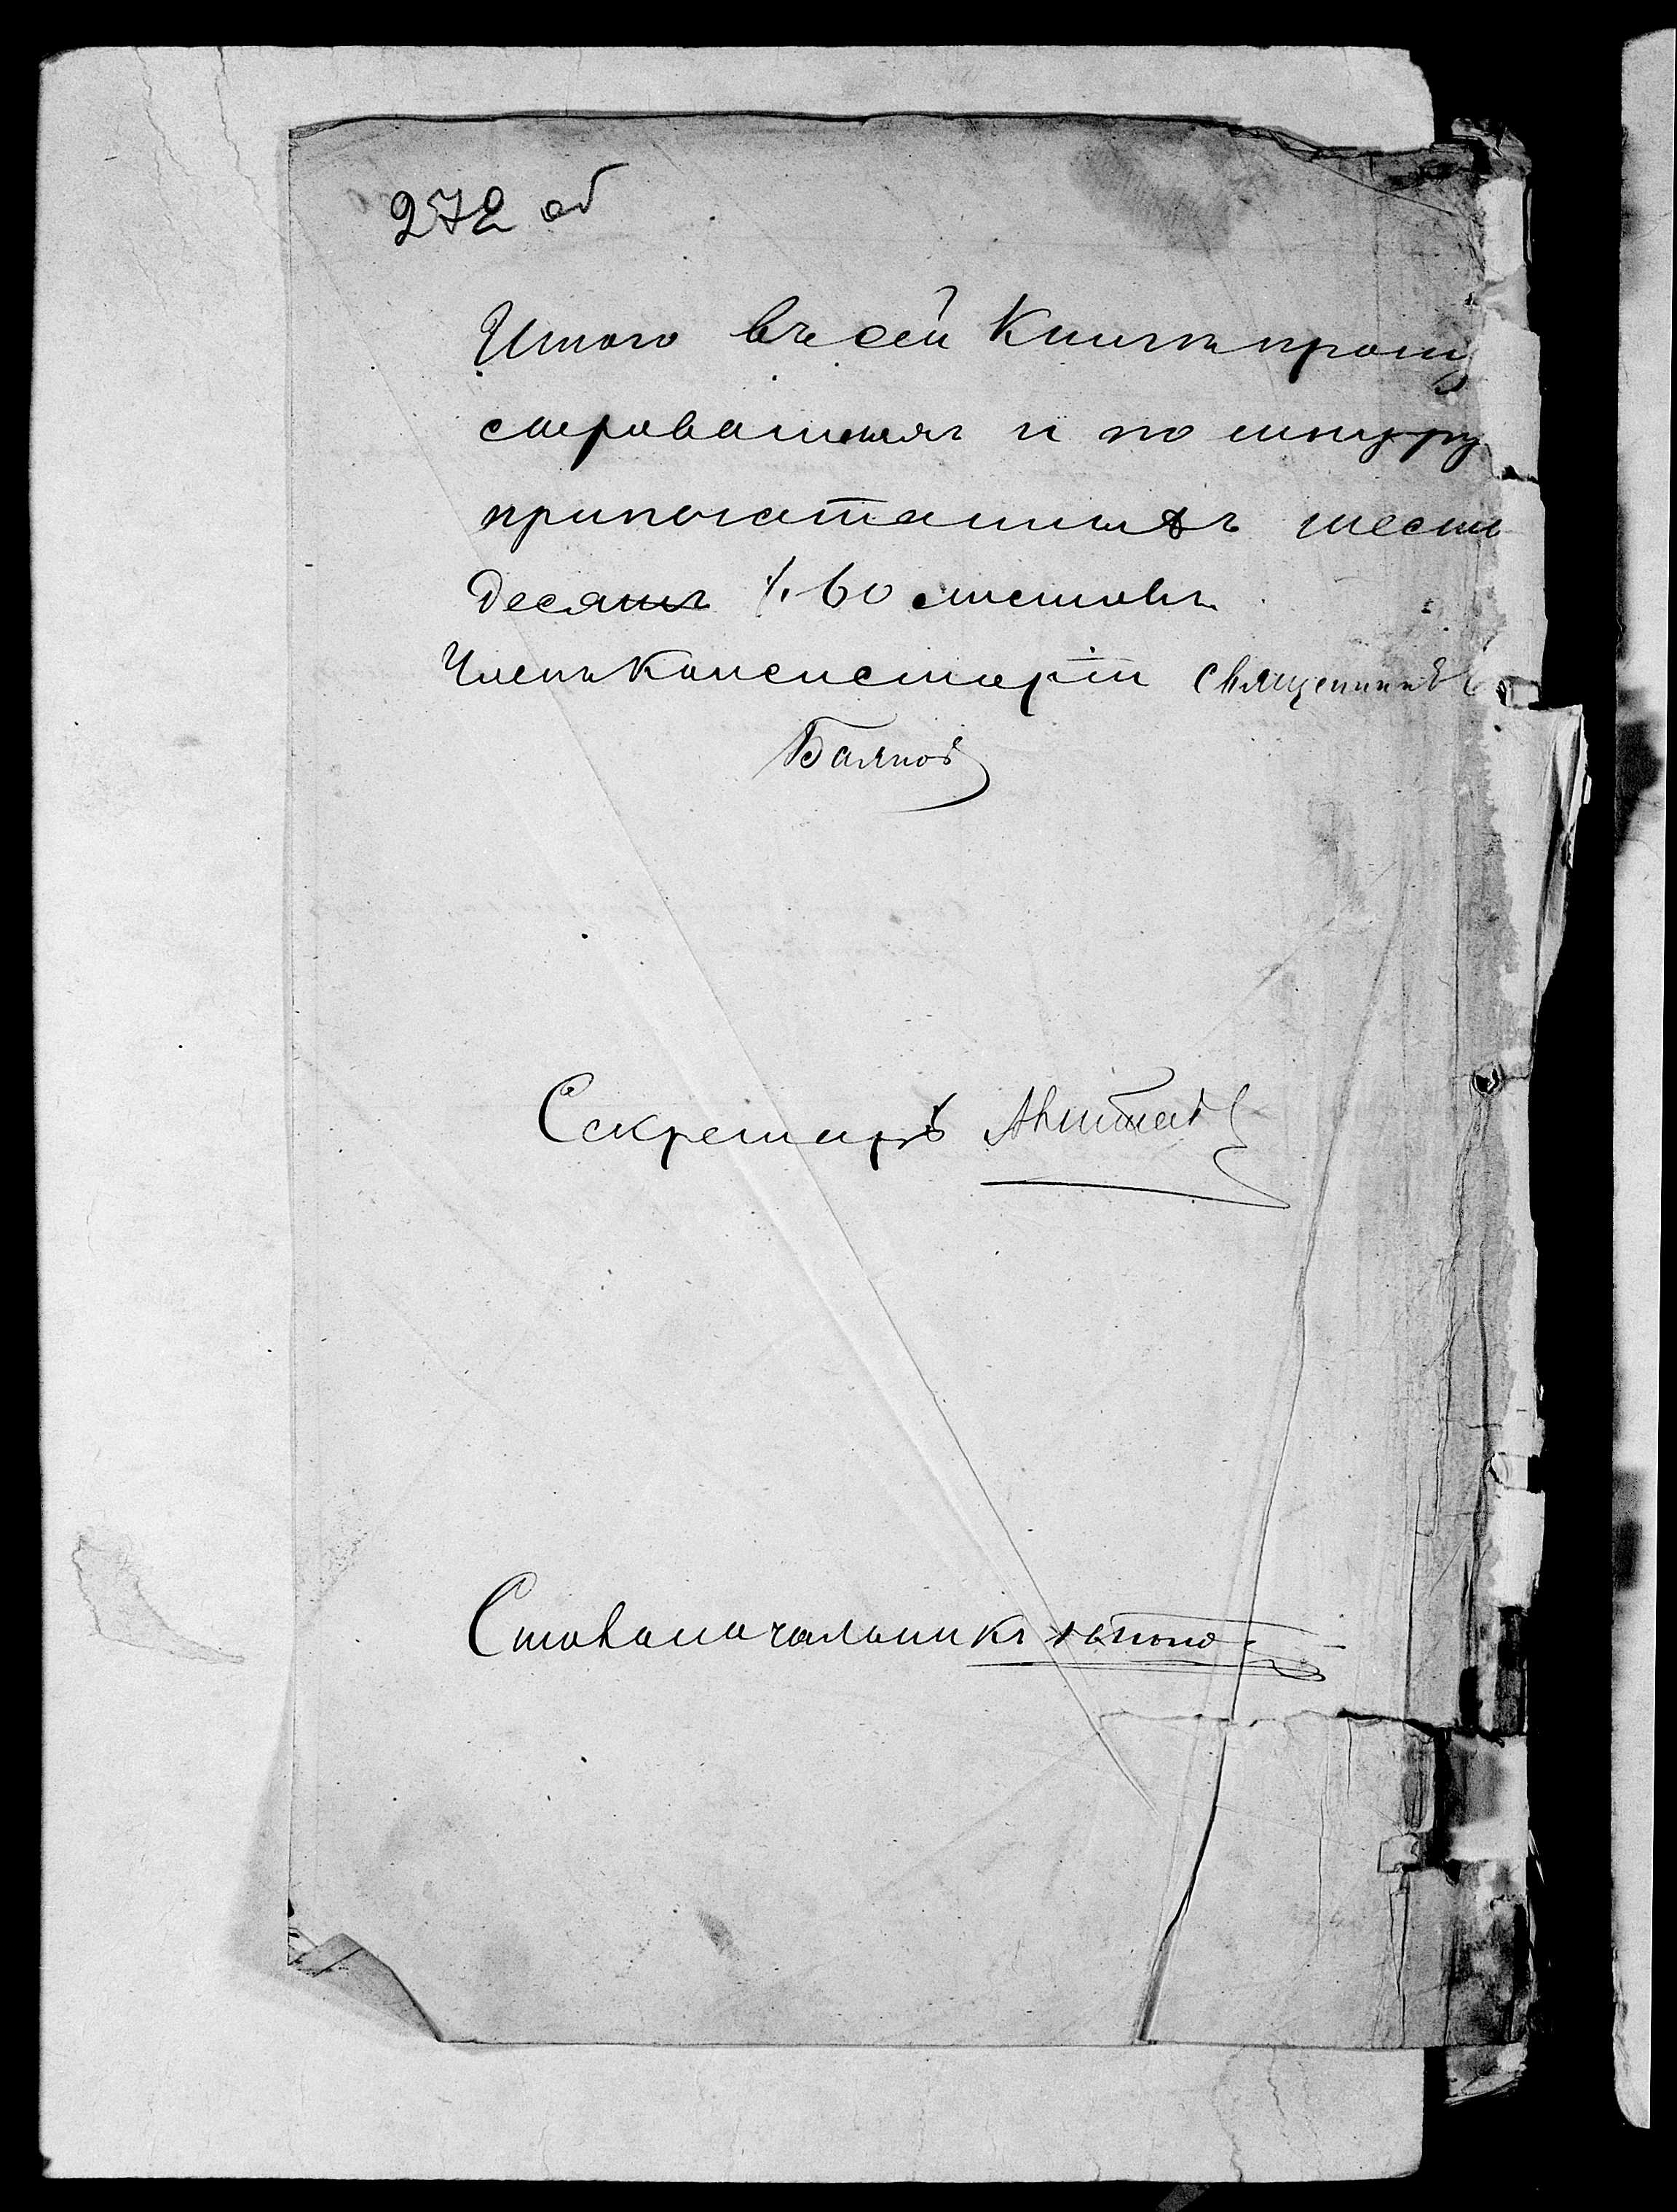 272 об
Итого въ сей Книгѣ прону
мерованныхъ и по шнуру
припечатанныхъ шесть
десятъ /. 60 листовъ.
Членъ Консисторіи Священникъ
Баяновъ
Секретарь
Столоначальникъ